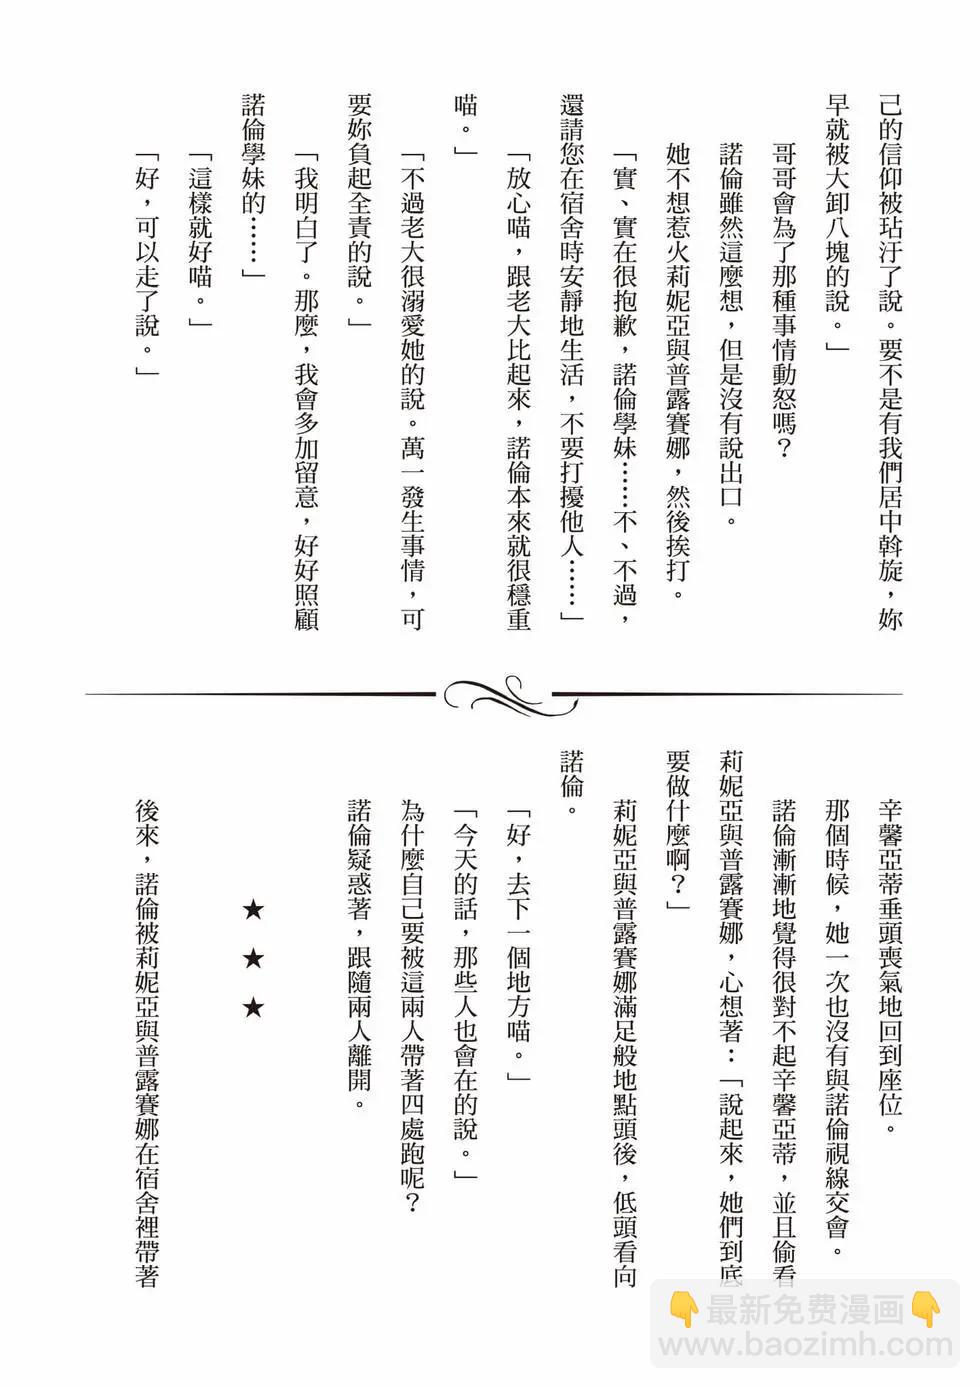 己的信仰被玷汙了說。要不是有我們居中斡旋，妳
早就被大卸八塊的說。」
哥哥會為了那種事情動怒嗎？
諾倫雖然這麼想，但是沒有說出口。
她不想惹火莉妮亞與普露賽娜，然後挨打。
「實、實在很抱歉，諾倫學妹……不、不過，
還請您在宿舍時安靜地生活，不要打擾他人……」
「放心喵，跟老大比起來，諾倫本來就很穩重
喵。」
「不過老大很溺愛她的說。萬一發生事情，可
要妳負起全責的說。」
「我明白了。那麼，我會多加留意，好好照顧
諾倫學妹的……」
「這樣就好喵。」
「好，可以走了說。」
辛馨亞蒂垂頭喪氣地回到座位。
那個時候，她一次也沒有與諾倫視線交會。
諾倫漸漸地覺得很對不起辛馨亞蒂，並且偷看
莉妮亞與普露賽娜，心想著：「說起來，她們到底
要做什麼啊？」
莉妮亞與普露賽娜滿足般地點頭後，低頭看向
諾倫。
「好，去下一個地方喵。」
「今天的話，那些人也會在的說。」
為什麼自己要被這兩人帶著四處跑呢？
諾倫疑惑著，跟隨兩人離開。
★ ★ ★
後來，諾倫被莉妮亞與普露賽娜在宿舍裡帶著
👇最新免费漫画👇
www.baozimh.com